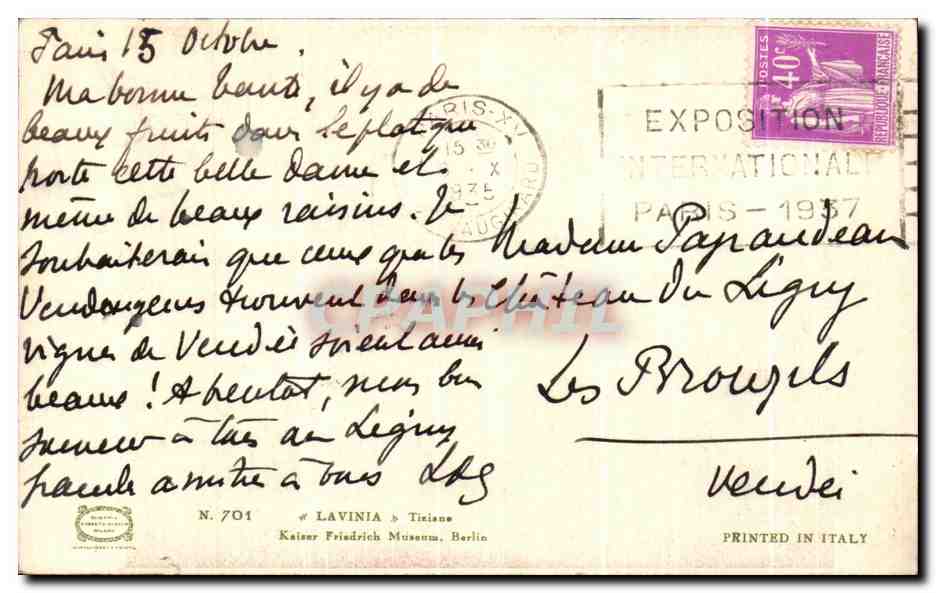 Paris 15 Octobre.
Ma bonne tante, il y a de
beaux fruits dans le plat que
porte cette belle dame et
même de beaux raisins. Je
souhaiterais que ceux que les
Vendangeurs trouvent dans les
vignes de Vendée soient aussi
beaux ! A bientôt, mon bon
souvenir à tous au Ligny
à vous
PARIS-XV
15 30
X
1935
EXPOSITION
INTERNATIONALE
PARIS - 1937
POSTES
40c
REPUBLIQUE FRANÇAISE
Madame Papaudeau
Château du Ligny
Les Brouzils
Vendée
CPAPHIL
N. 701
« LAVINIA » Tiziano
Kaiser Friedrich Museum, Berlin
PRINTED IN ITALY